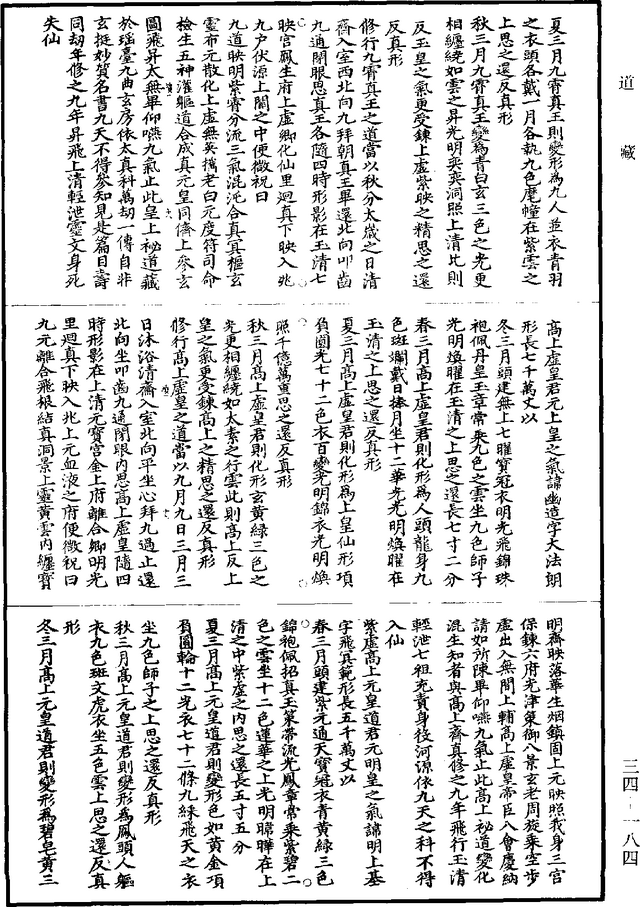 道藏
夏三月九霄真王則變形為九人並衣青羽
之衣頭各戴一月各執九色麾幢在紫雲之
上思之還反真形
秋三月九霄真王變為青白玄三色之光更
相纏繞如雲之昇光明奕奕洞照上清比則
反玉皇之氣更受鍊上虛紫映之精思之還
反真形
修行九霄真王之道當以秋分太歲之日清
齋入室西北向九拜朝真王畢還北向叩齒
九通閉眼思真王各隨四時形影在玉清七
映宮鳳生府上虛鄉化仙里迴真下映入兆
九戶伏源上關之中便微祝曰
九道映明紫霄分流三氣混沌合真冥樞玄
靈布元散化上虛無英攜老白元度符司命
檢生五神濯軀道合成真元皇同儔上參玄
圖飛昇太無畢仰嚥九氣止此皇上祕道藏
於瑤臺九曲玄房依太真科萬劫一傳自非
玄挺妙質名書九天不得參知見此篇目壽
同劫年修之九年昇飛上清輕泄靈文身死
失仙
高上虛皇君元上皇之氣諱幽造字大法朗
形長七千萬丈以
冬三月頭建無上七曜寶冠衣明光飛錦珠
袍佩丹皇玉章常乘九色之雲坐九色師子
光明煥曜在玉清之上思之還長七寸二分
春三月高上虛皇君則化形為人頭龍身九
色斑爛戴日捧月坐十二華光光明煥曜在
玉清之上思之還反真形
夏三月高上虛皇君則化形為上皇仙形項
負圓光七十二色衣百變光明錦衣光明煥
照千億萬重思之還反真形
秋三月高上虛皇君則化形玄黃綠三色之
光更相纏繞如太素之行雲此則高上反上
皇之氣更受鍊高上之精思之還反真形
修行高上虛皇之道當以九月九日三月三
日沐浴清齋入室北向平坐心拜九過止還
北向坐叩齒九通閉眼內思高上虛皇隨四
時形影在上清元寶宮金上府離合鄉明光
里迴真下映入兆上元血液之府便微祝曰
九元離合飛根結真洞景上靈黃雲內纏寶
明齊映落華生烟鎮固上元映照我身三宮
保鍊六府光津策御八景玄老周旋乘空步
虛出入無間上輔高上虛皇帝臣八會慶納
請如所陳畢仰嚥九氣止此高上祕道變化
混生知者與高上齊真修之九年飛行玉清
輕泄七祖充責身役河源依九天之科不得
入仙
紫虛高上元皇道君元明皇之氣諱明上基
字飛冥範形長五千萬丈以
春三月頭建紫元通天寶冠衣青黃綠三色
錦袍佩招真玉策帶流光鳳章常乘紫碧二
色之雲坐十二色蓮華之上光明暐曄在上
清之中紫虛之內思之還長五寸五分
夏三月高上元皇道君則變形色如黃金項
負圓輪十二光衣七十二條九綵飛天之衣
坐九色師子之上思之還反真形
秋三月高上元皇道君則變形為鳳頭人軀
衣九色班文虎衣坐五色雲上思之還反真
形
冬三月高上元皇道君則變形為碧皂黃三
三四—一八四